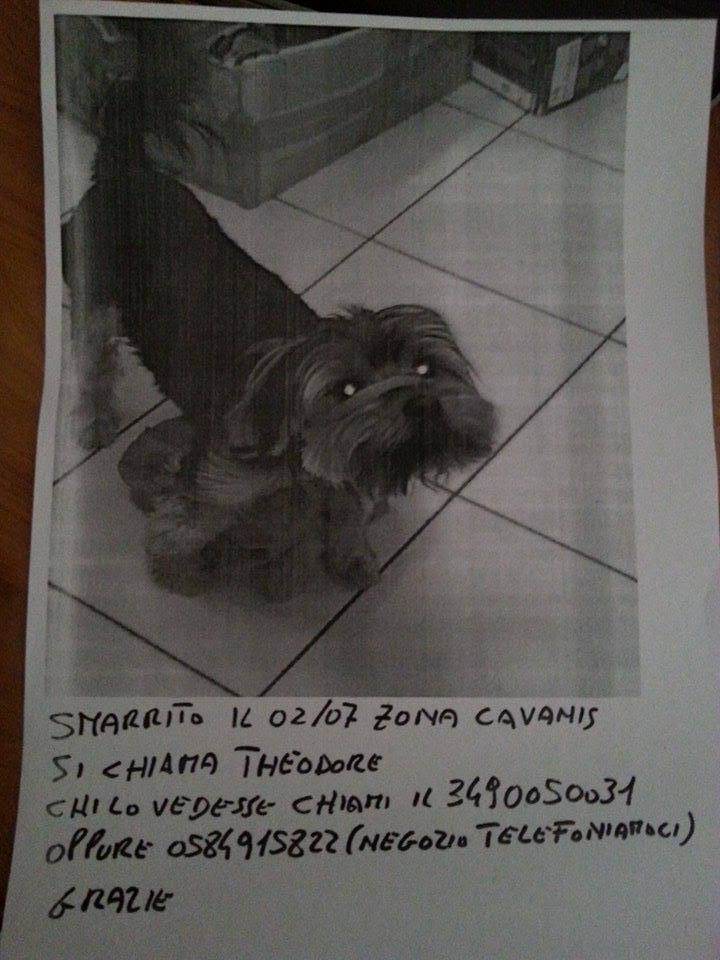 SMARRITO IL 02/07 ZONA CAVANIS
SI CHIAMA THEODORE
CHI LO VEDESSE CHIAMI IL 3490050031
OPPURE 0584915822 (NEGOZIO TELEFONIAMOCI)
GRAZIE